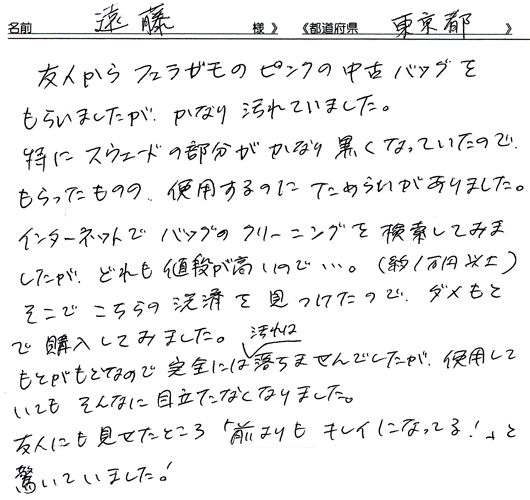 名前 遠藤 様》 《都道府県 東京都 》
友人から フェラガモの ピンクの 中古バッグを
もらいましたが、かなり 汚れていました。
特に スウェードの部分が かなり 黒くなっていたので、
もらったものの、使用するのに ためらいがありました。
インターネットで バッグのクリーニングを 検索してみま
したが、どれも 値段が高いので…。(約1万円以上)
そこで こちらの 洗剤を 見つけたので、ダメもと
で 購入してみました。
汚れは
もとがもとなので 完全には落ちませんでしたが、使用して
いても そんなに 目立たなくなりました。
友人にも 見せたところ 「前よりも キレイになってる!」と
驚いていました!